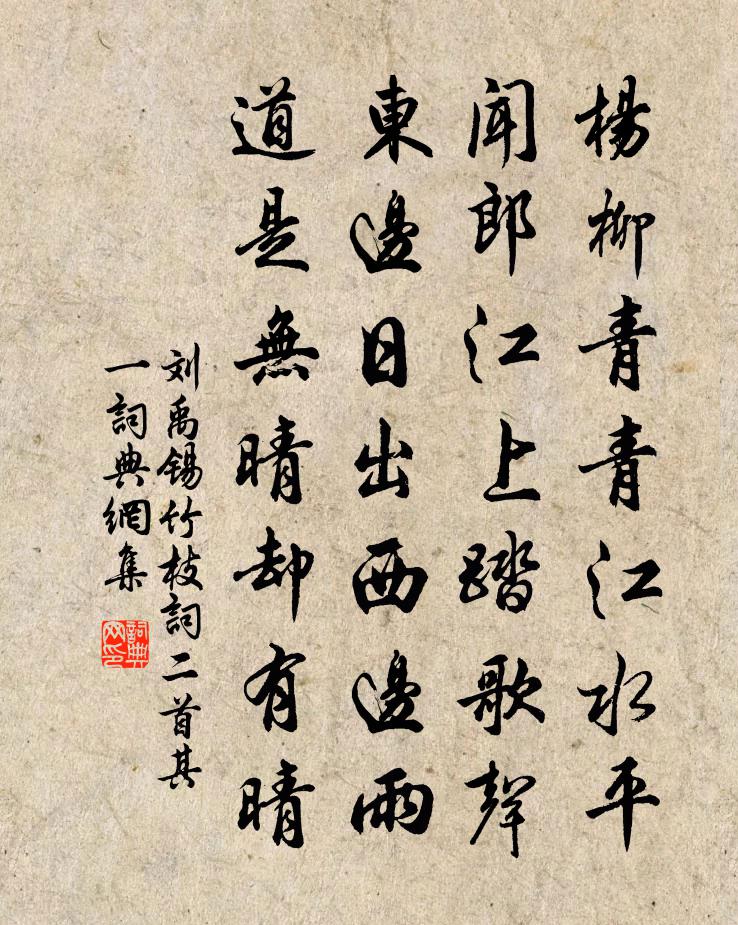 楊柳青青江水平
聞郎江上踏歌聲
東邊日出西邊雨
道是無晴却有晴
刘禹锡竹枝詞二首其
一詞典網集
詞典网印